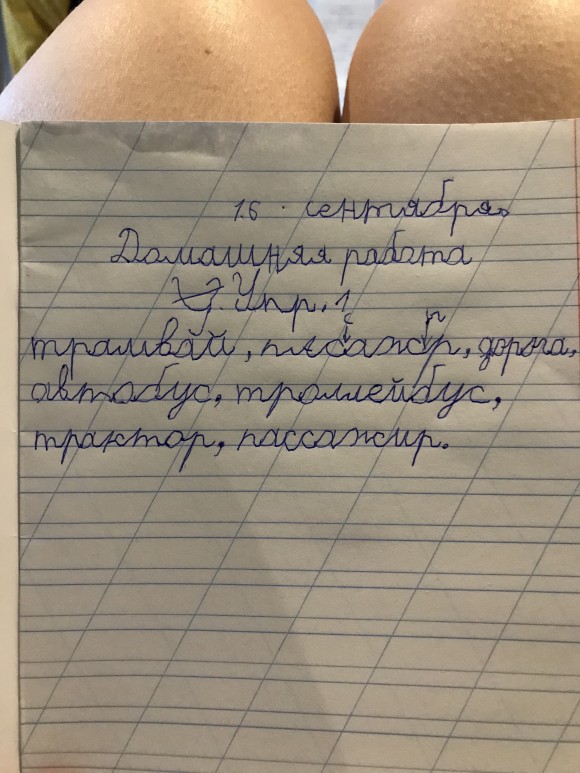 16. сентября.
Домашняя работа
Упр. 1
трамвай, пасажир, дорога,
автобус, троллейбус,
трактор, пассажир.